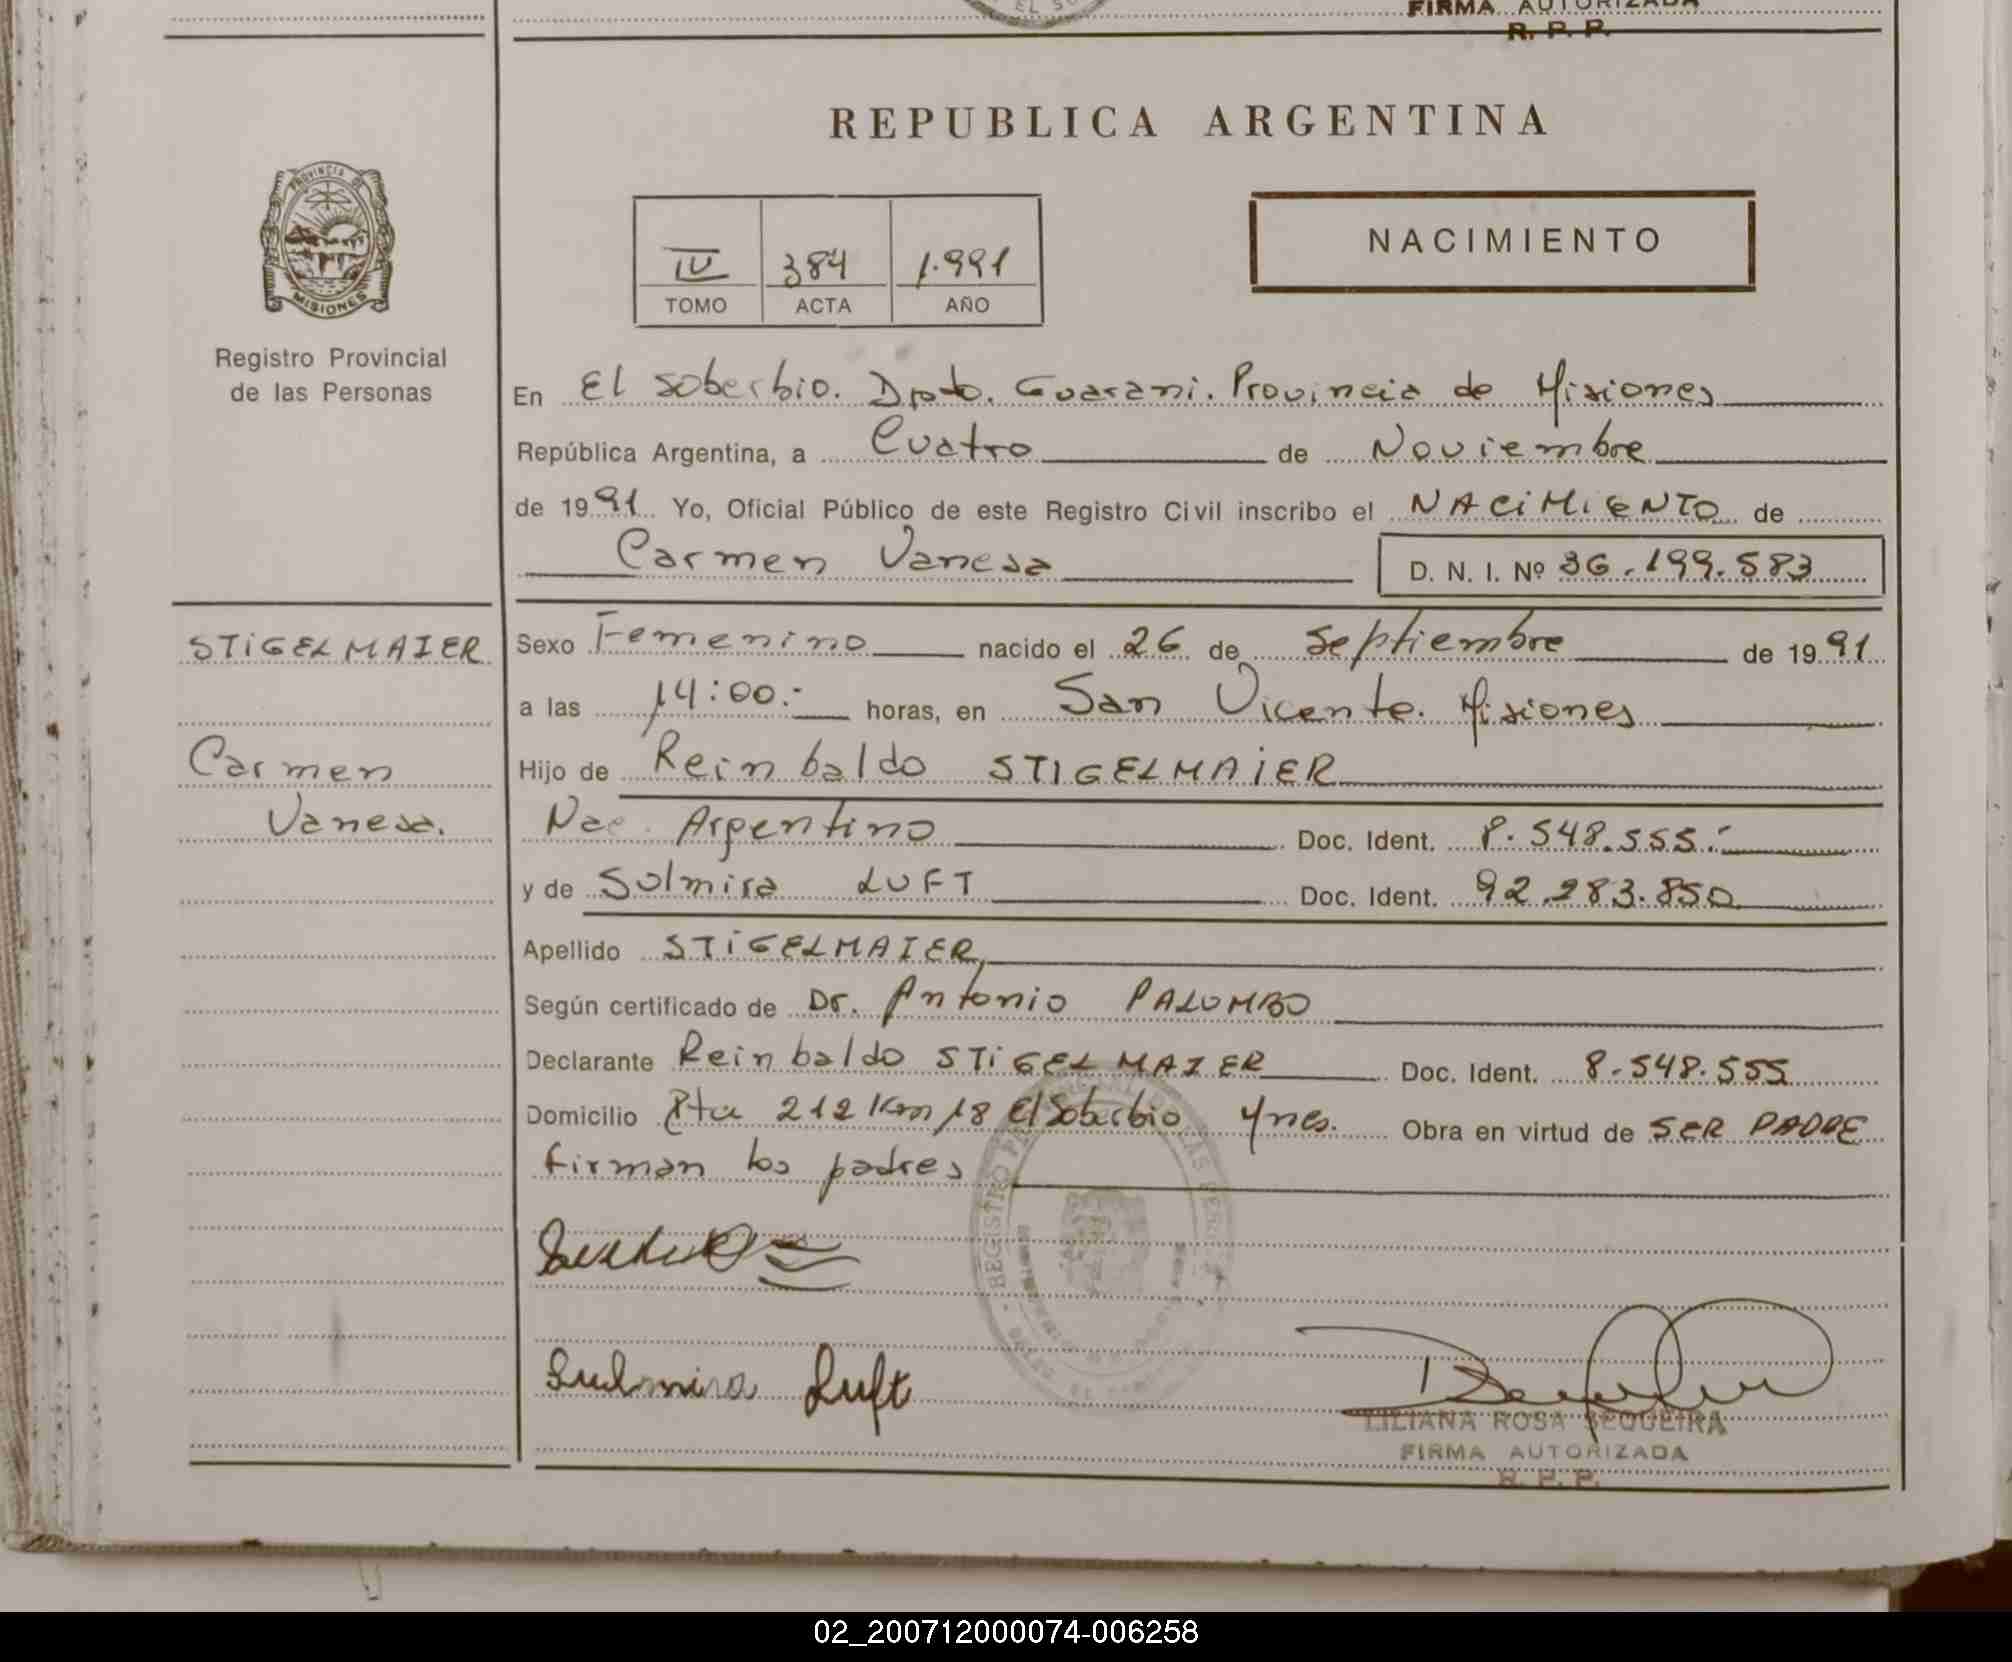 FIRMA AUTORIZADA
R. P. P.
REPUBLICA ARGENTINA
PROVINCIA DE
MISIONES
Registro Provincial
de las Personas
IV 384 1.991
TOMO ACTA AÑO
NACIMIENTO
En El Soberbio. Dpto. Guarani. Provincia de Misiones
República Argentina, a Cuatro de Noviembre
de 1991 Yo, Oficial Público de este Registro Civil inscribo el NACIMIENTO de
Carmen Vanesa D. N. I. Nº 36.199.583
STIGELMAIER
Carmen
Vanesa.
Sexo Femenino nacido el 26 de Septiembre de 1991
a las 14:00.- horas, en San Vicente. Misiones
Hijo de Reinbaldo STIGELMAIER
Nac. Argentino Doc. Ident. 8.548.555.-
y de Sulmira LUFT Doc. Ident. 92.283.850
Apellido STIGELMAIER
Según certificado de Dr. Antonio PALOMBO
Declarante Reinbaldo STIGELMAIER Doc. Ident. 8.548.555
Domicilio Rta 212 Km 18 El Soberbio Mnes. Obra en virtud de SER PADRE
firman los padres
Sulmira Luft
LILIANA ROSA SEQUEIRA
FIRMA AUTORIZADA
R. P. P.
02_200712000074-006258